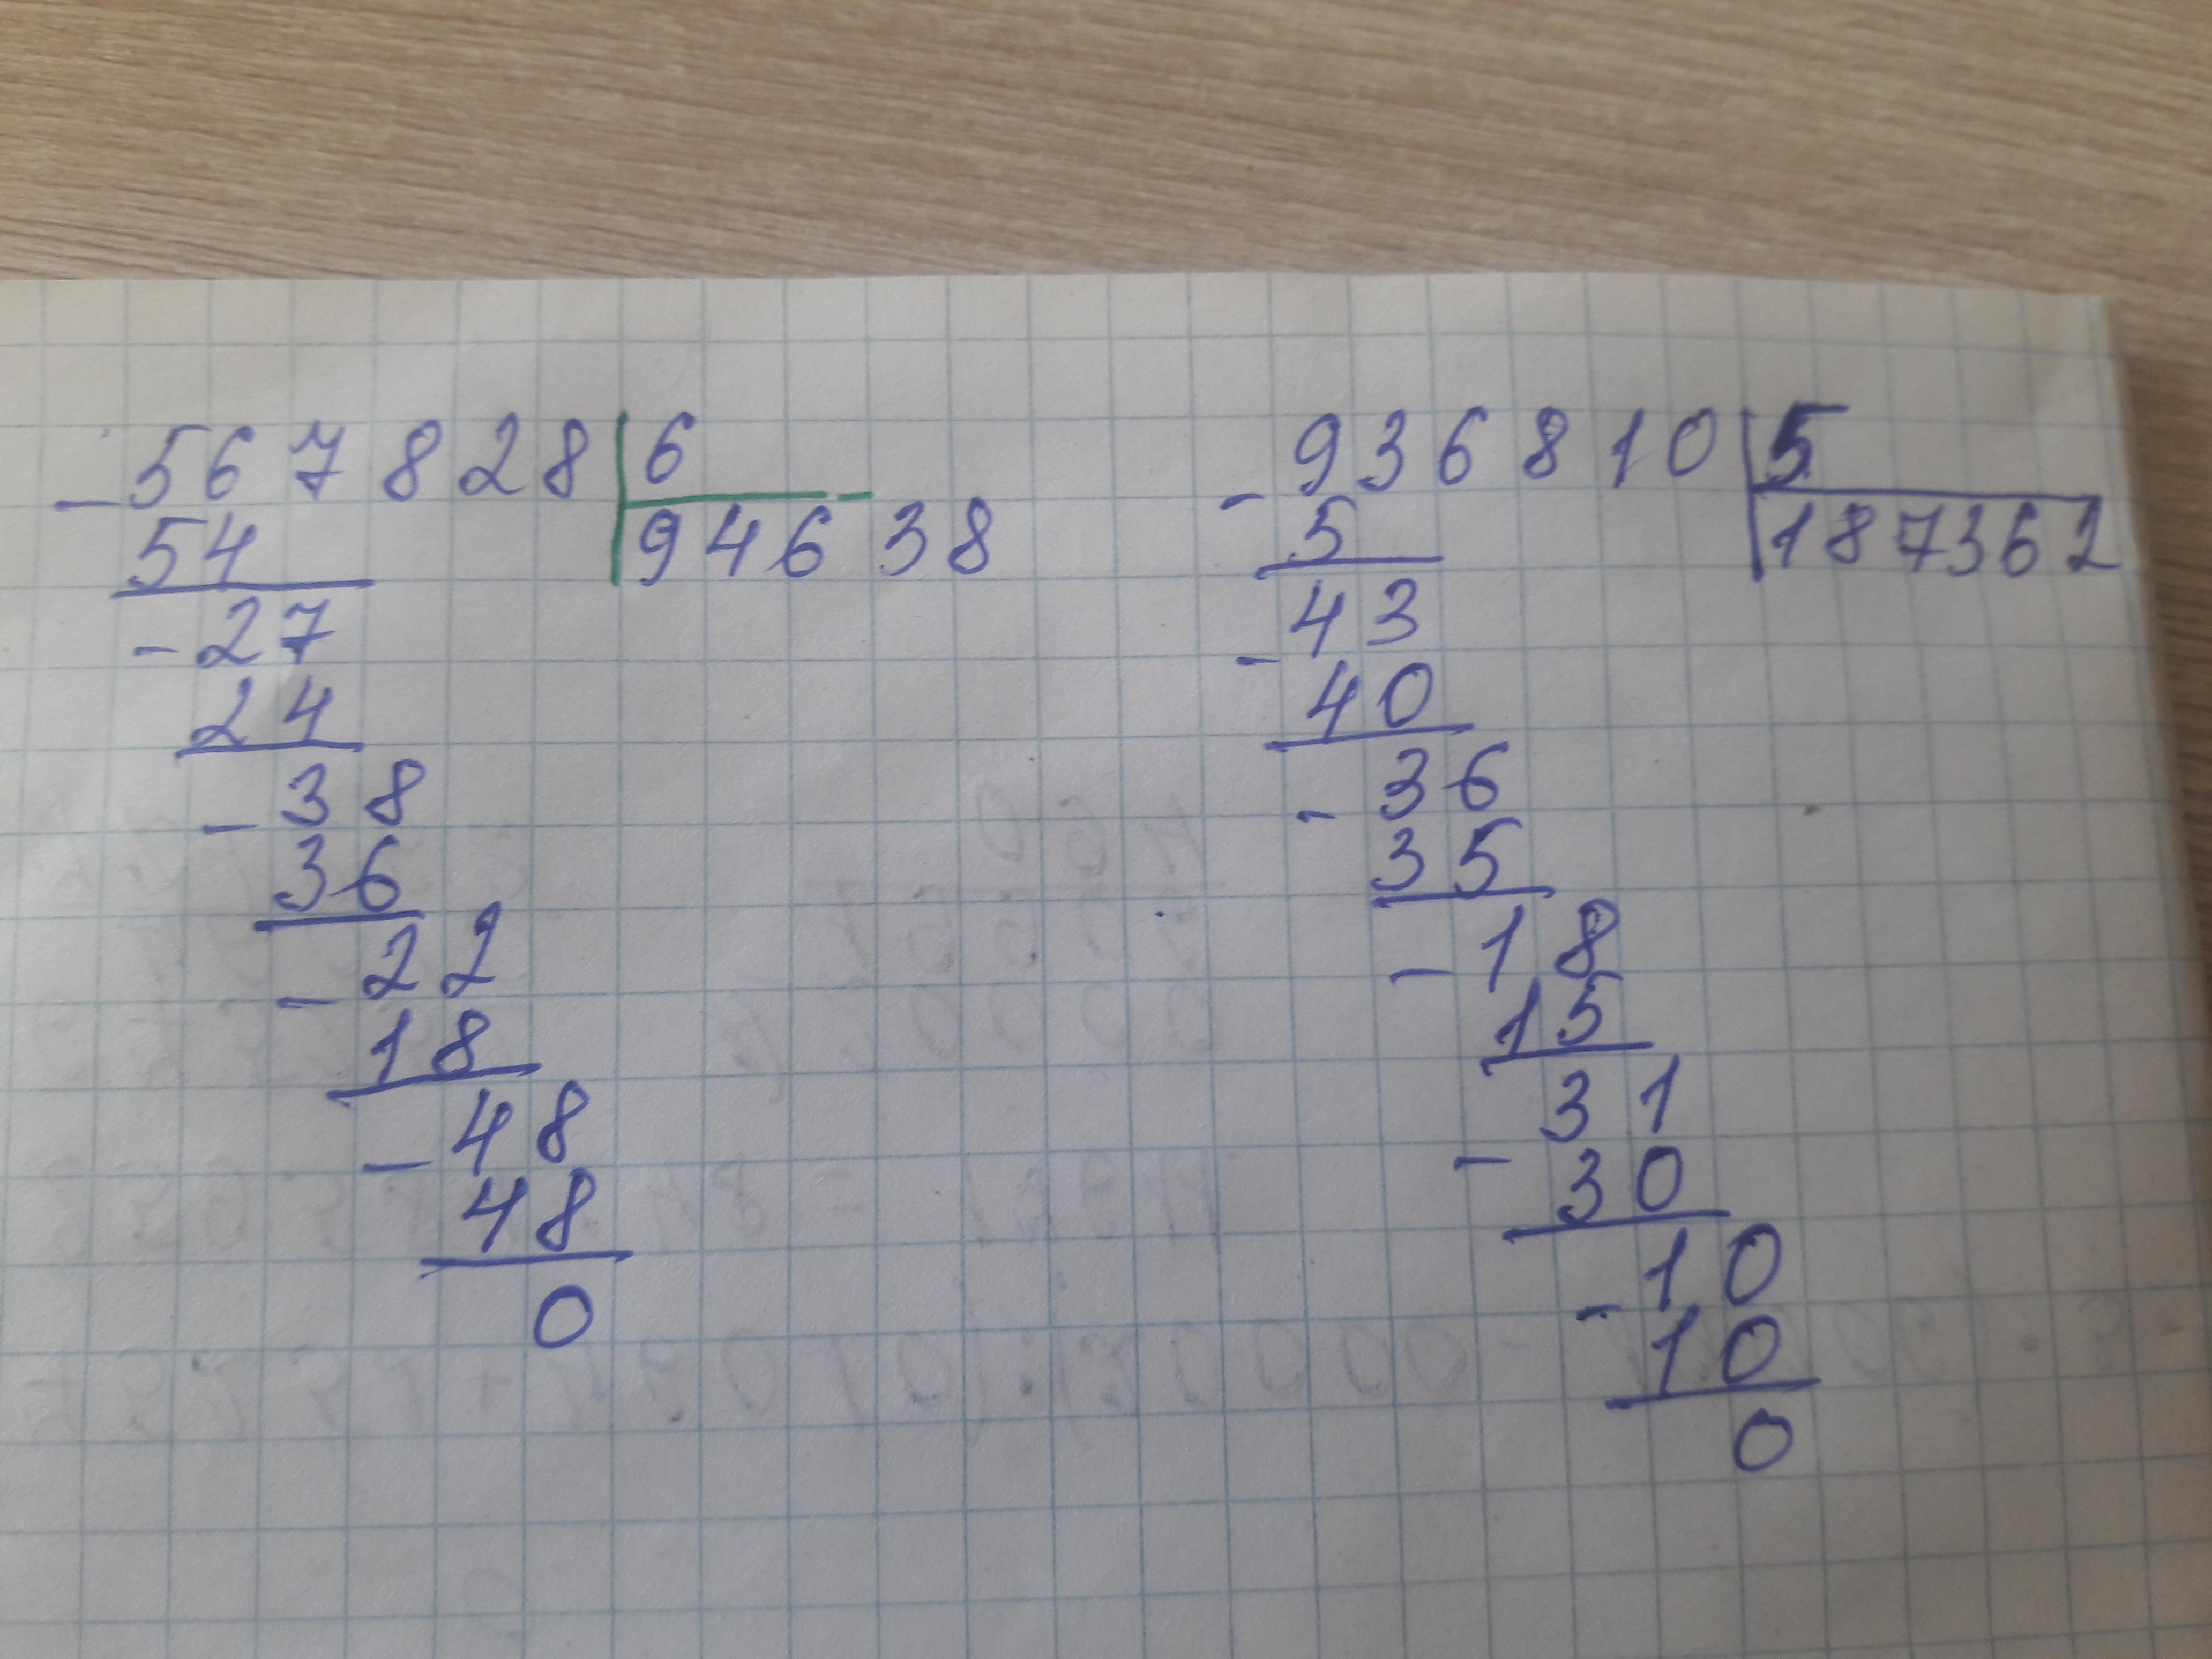 -567828|6
54
94638
-27
24
-38
36
-22
18
-48
48
0
-936810|5
5
187362
-43
40
-36
35
-18
15
-31
30
-10
10
0